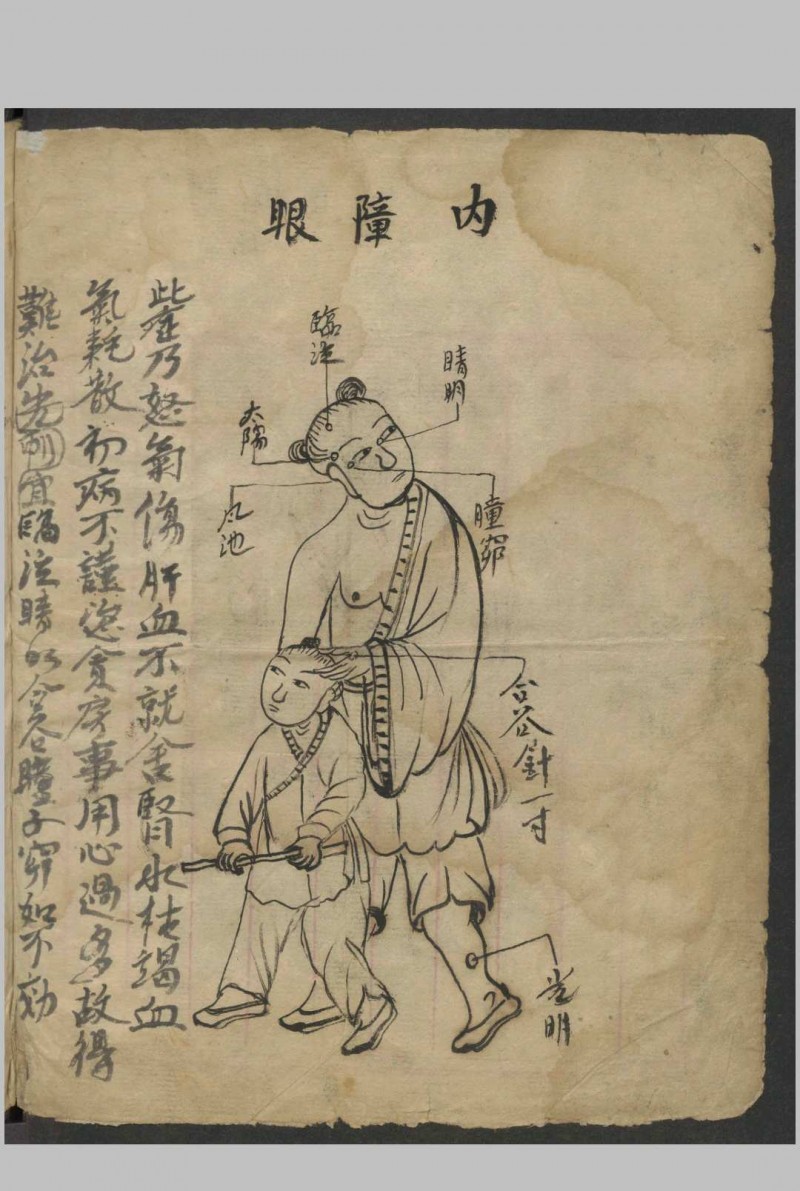 內障眼
臨泣
睛明
太陽
風池
瞳窌
合谷針一寸
光明
此症乃怒氣傷肝血不就舍腎水枯竭血
氣耗散初病不謹恣貪房事用心過多故得
難治先刺宜臨泣睛明合谷瞳子窌如不効